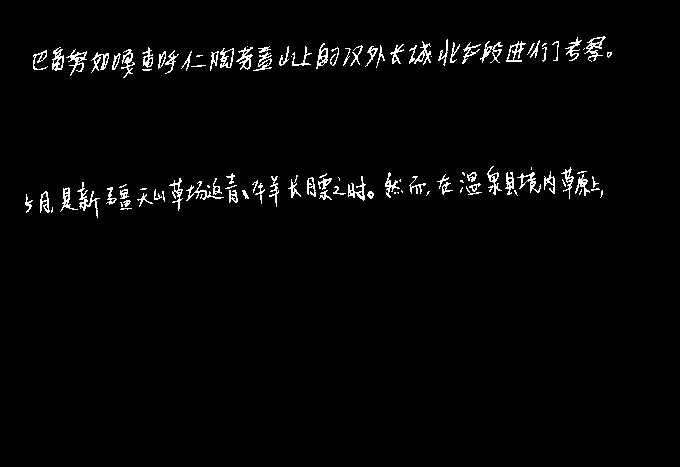 巴音努如嘎查呼仁陶勒盖山上的汉外长城北线段进行了考察。
5月,是新疆天山草场返青、牛羊长膘之时。然而,在温泉县境内草原上,